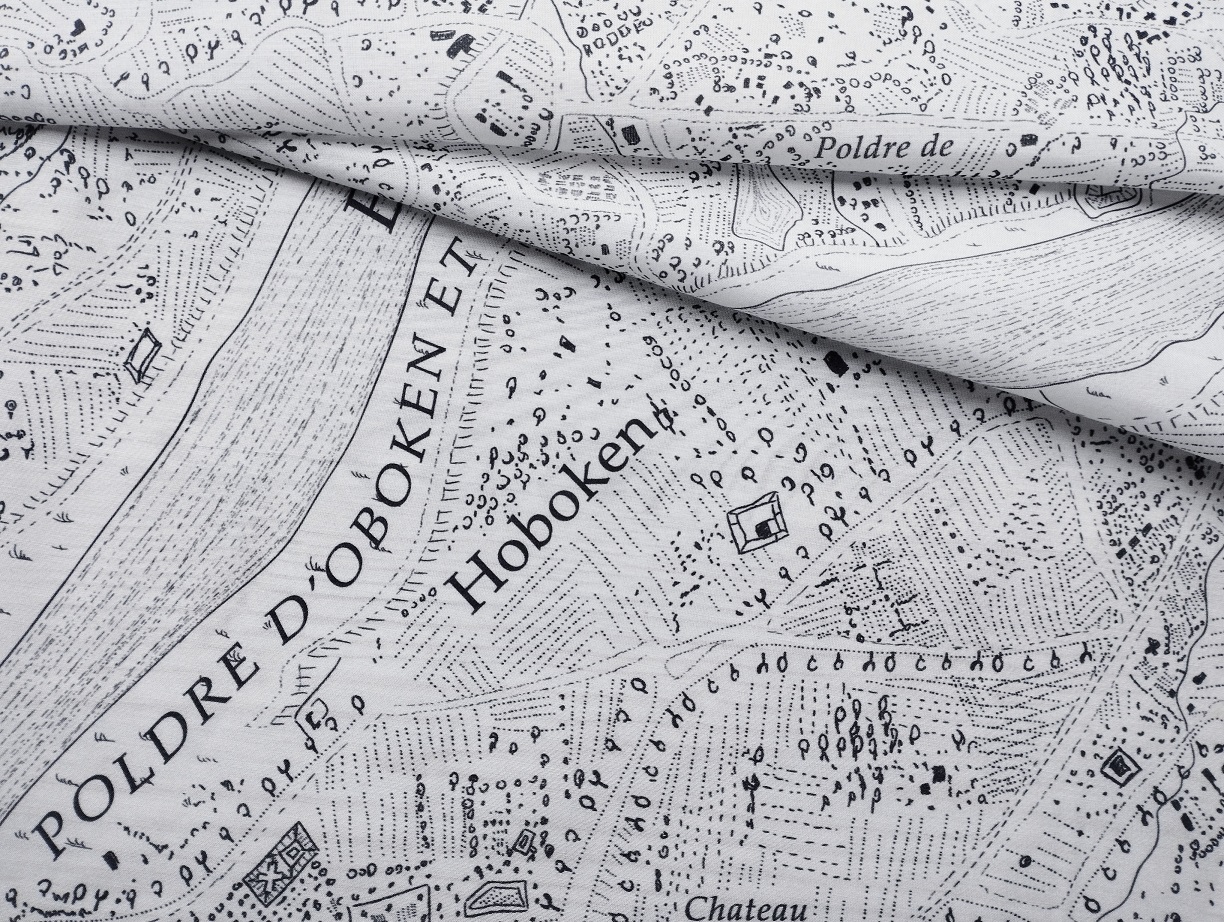 Poldre de
POLDRE D'OBOKEN ET
Hoboken
Chateau